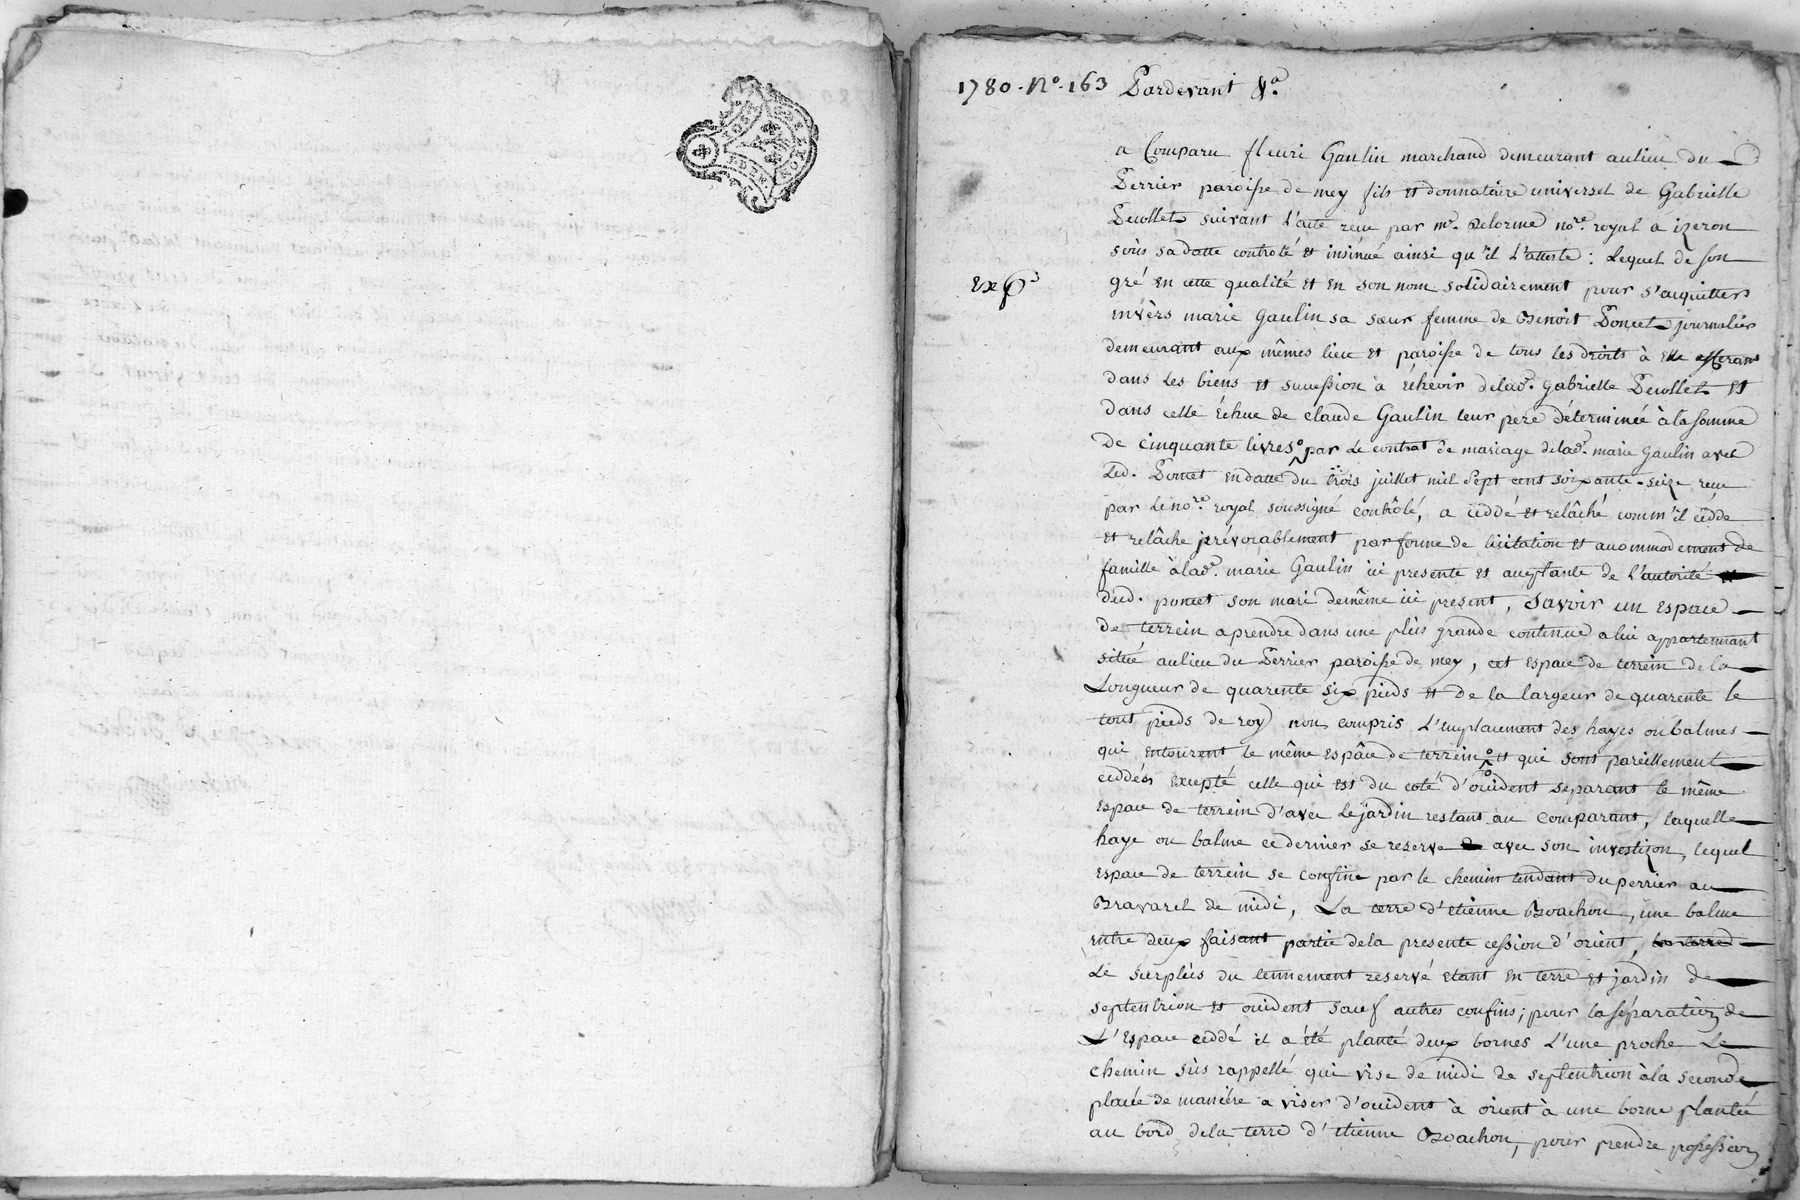 1780. N°. 163 Pardevant &ª.
a Comparu fleuri Gaulin marchand demeurant au lieu du
Perrier paroisse de mey fils et donnataire universel de Gabrielle
Decollet suivant l'acte recu par mᵉ. Delorme noʳᵉ. royal a izeron
sous sa datte controlé et insinué ainsi qu'il l'atteste : Lequel de son
Exp
gré en cette qualité et en son nom solidairement pour s'acquitter
invèrs marie Gaulin sa sœur femme de Benoit Poncet journalier
demeurant aux mêmes lieu et paroisse de tous les droits à elle
dans les biens et sucession à échevir delade. Gabrielle Decollet et
dans celle échue de claude Gaulin leur pere déterminée à la somme
de cinquante livres par le contrat de mariage delade. marie Gaulin avec
Led. Poncet en datte du trois juillet mil sept cent soixante-seize recu
par le noʳᵉ. royal soussigné contrôlé, a céddé et relâché comm'il cédde
et relâche irrévocablement par forme de licitation et accommodement de
famille à lade. marie Gaulin ici presente et aceptante de l'autorité
dud. poncet son mari demême ici present, Savoir un espace
de terrein a prendre dans une plùs grande contenue a lui appartennant
situé au lieu du Perrier paroisse de mey, cet espace de terrein de la
Longueur de quarente six pieds et de la largeur de quarente le
tout pieds de roy non compris l'emplacement des hayes ou balmes
qui entourent le même espâce de terrein et qui sont pareillement
céddés excepté celle qui est du coté d'occident separant le même
espace de terrein d'avec le jardin restant au comparant, laquelle
haye ou balme ce dernier se reserve avec son investizon, lequel
espace de terrein se confine par le chemin tendant du perrier au
Bravarel de midi, La terre d'etienne Boachon, une balme
entre deux faisant partie de la presente cession d'orient, la terre
Le surplùs du tennement reservé etant en terre et jardin de
septentrion et occident sauf autres confins; pour la séparation de
L'Espace céddé il a été planté deux bornes l'une proche le
chemin sùs rappellé qui vise de midi de septentrion à la seconde
placée de maniére a viser d'occident à orient à une borne plantée
au bord de la terre d'etienne Boachon, pour prendre possession